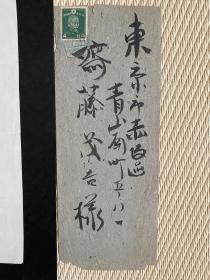 東京市赤坂區
青山南町五ノ八一
齋藤茂吉様